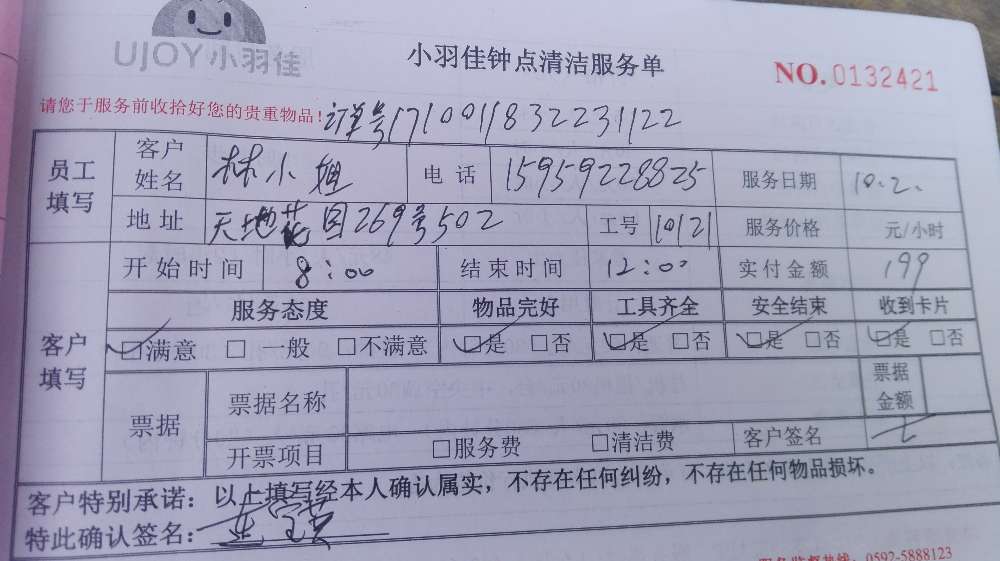 UJOY小羽佳
小羽佳钟点清洁服务单
NO.0132421
请您于服务前收拾好您的贵重物品!
订单号171001183223 1122
员工填写 客户姓名 林小姐 电话 15959228825 服务日期 10.2.
地址 天地花园269号502 工号 10121 服务价格 元/小时
客户填写 开始时间 8:00 结束时间 12:00 实付金额 199
服务态度 物品完好 工具齐全 安全结束 收到卡片
☑满意 □一般 □不满意 ☑是 □否 ☑是 □否 ☑是 □否 ☑是 □否
票据 票据名称 票据金额
开票项目 □服务费 □清洁费 客户签名
客户特别承诺：以上填写经本人确认属实，不存在任何纠纷，不存在任何物品损坏。
特此确认签名：
服务监督热线：0592-5888123